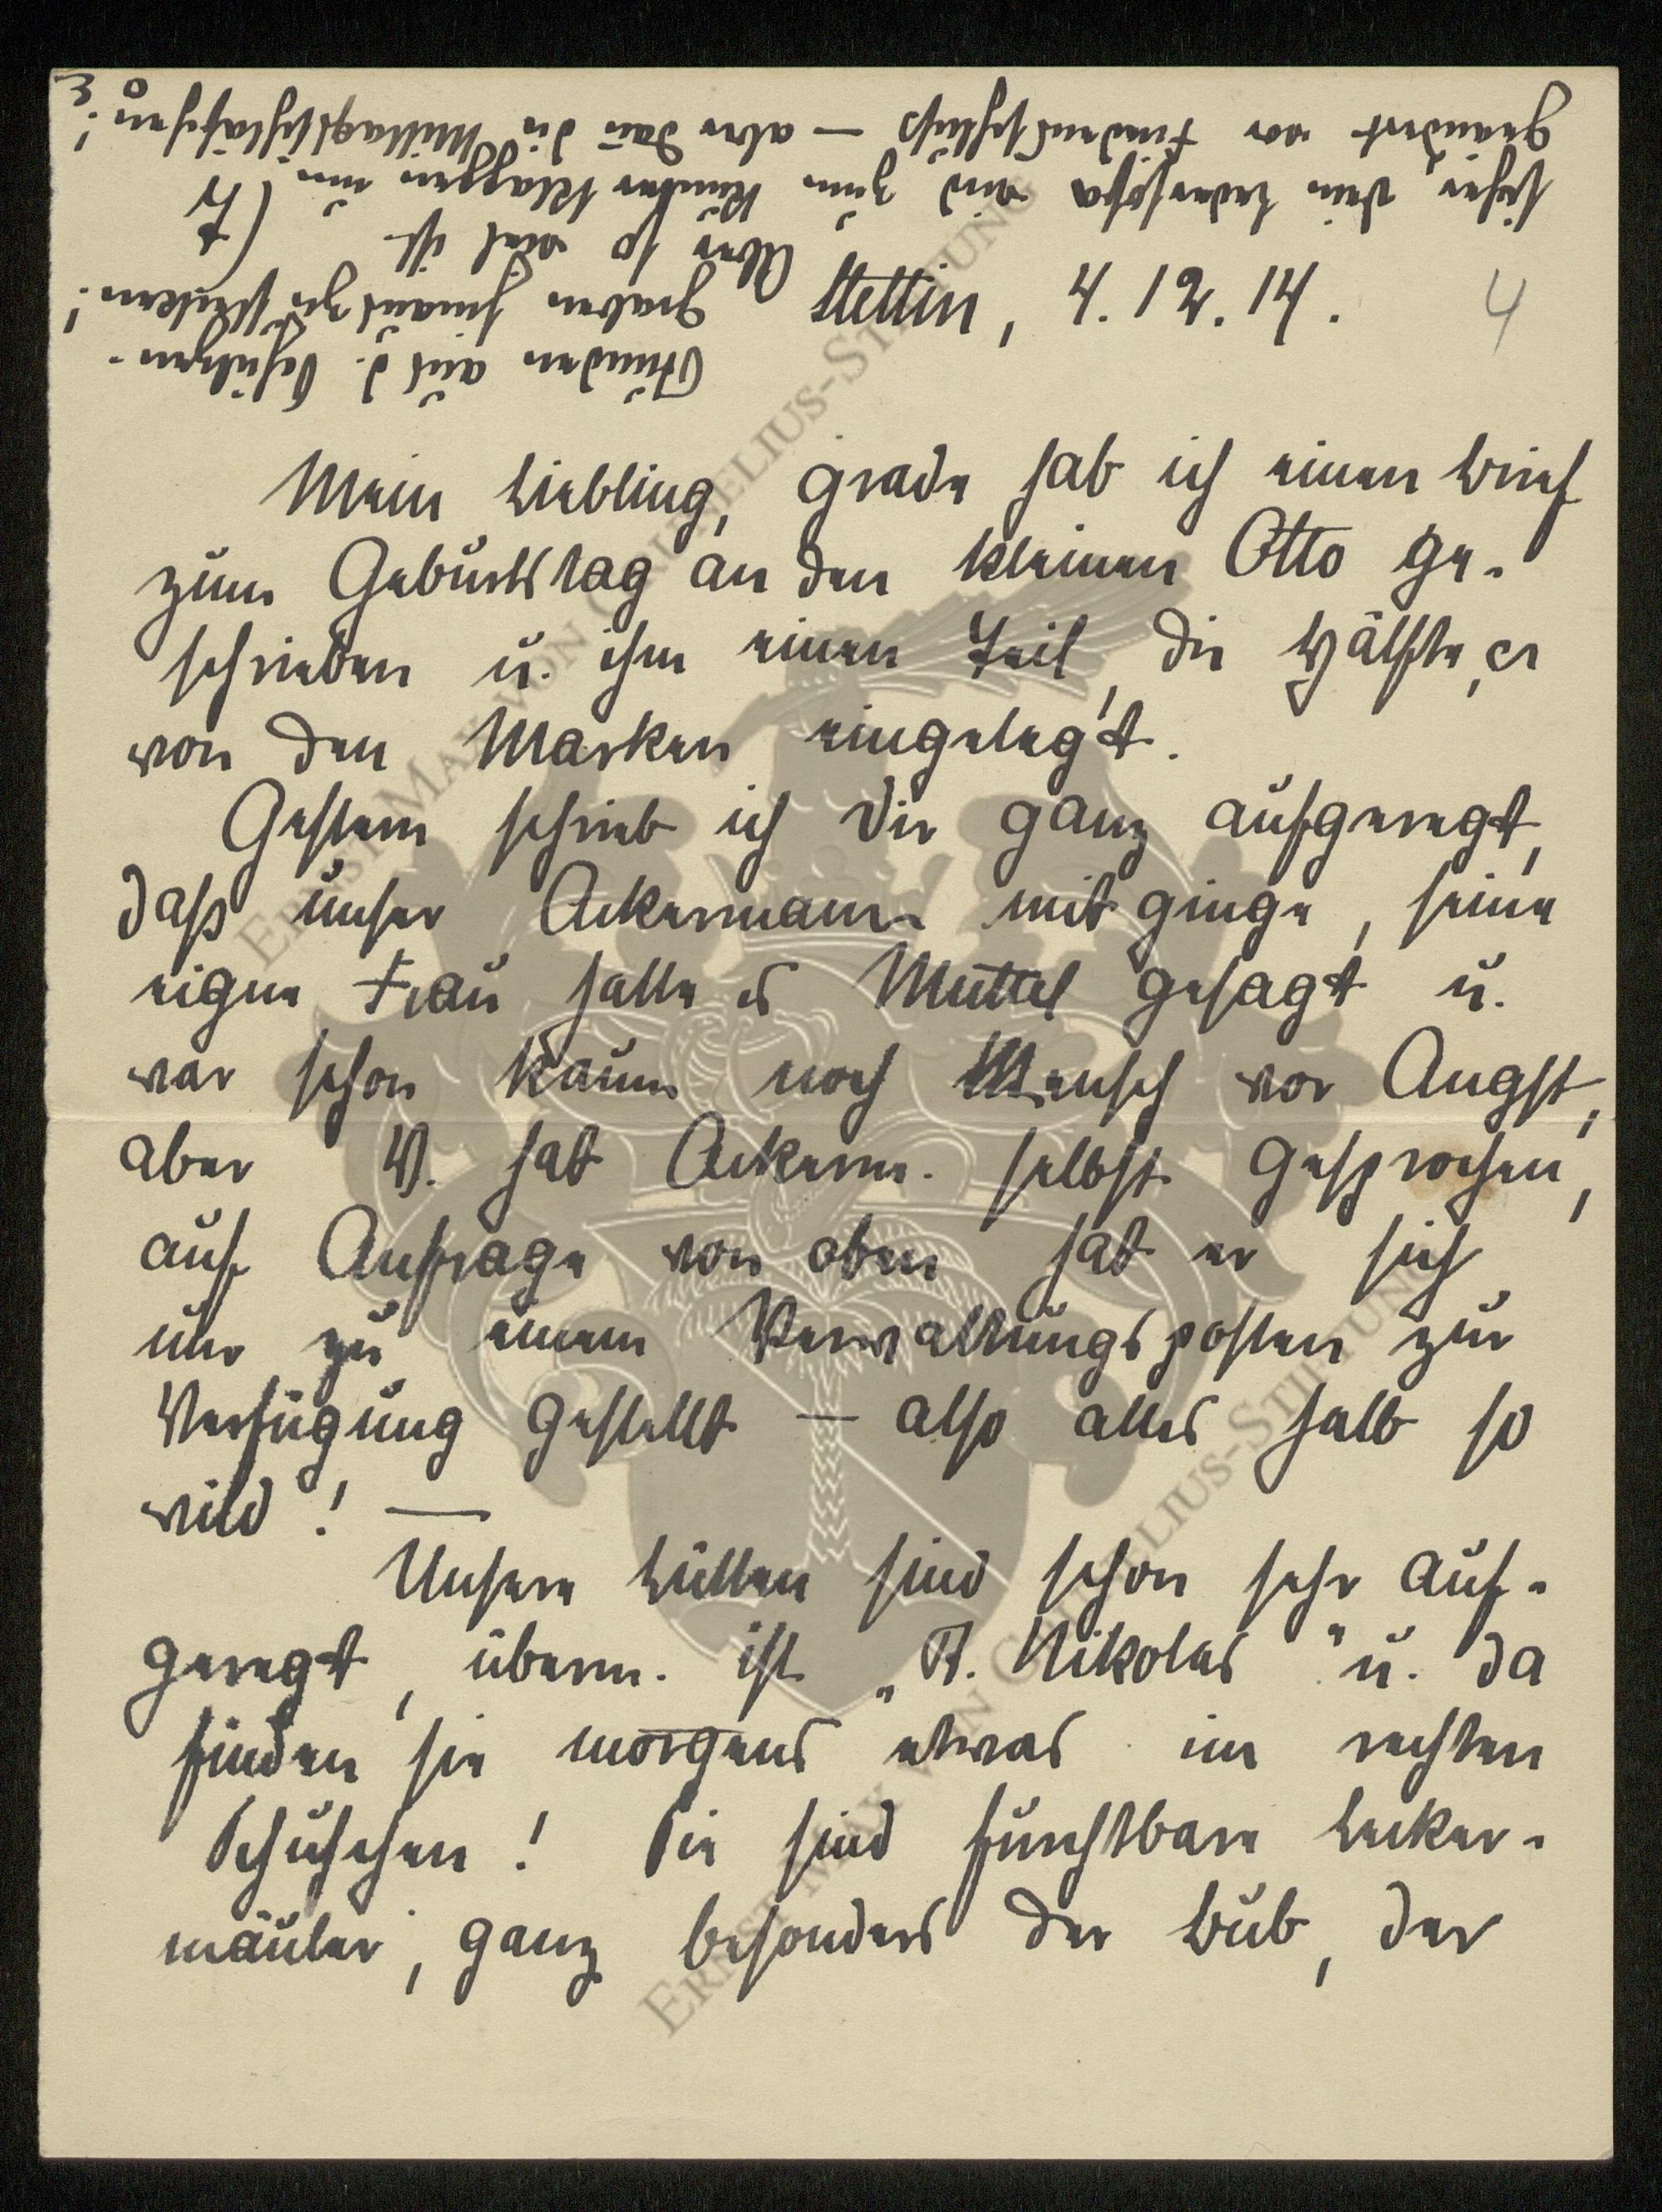 Stettin, 4.12.14. 4
Mein Liebling, grade hab ich einen Brief
zum Geburtstag an den kleinen Otto ge-
schrieben u. ihm einen Teil, die Hälfte,
von den Marken eingelegt.
Gestern schrieb ich Dir ganz aufgeregt,
daß unser Ackermann mit ginge, seine
eigne Frau hatte es Muttel gesagt u.
war schon kaum noch Mensch vor Angst,
aber V. hat Ackerm. selbst gesprochen,
auf Anfrage von oben hat er sich
nur zu einem Verwaltungsposten zur
Verfügung gestellt — also alles halb so
wild! —
Unsere Lütten sind schon sehr auf-
geregt, überm. ist „St. Nikolas" u. da
finden sie morgens etwas im rechten
Schuhchen! Sie sind furchtbare Lecker-
mäuler, ganz besonders der Bub, der
Stunden aus d. Schützen-
graben hinaus zu stecken!
Aber so viel ist
sicher, dein Ledersofa wird zum
geändert vor Friedensschluß — aber dan die Mittagsschläfchen!